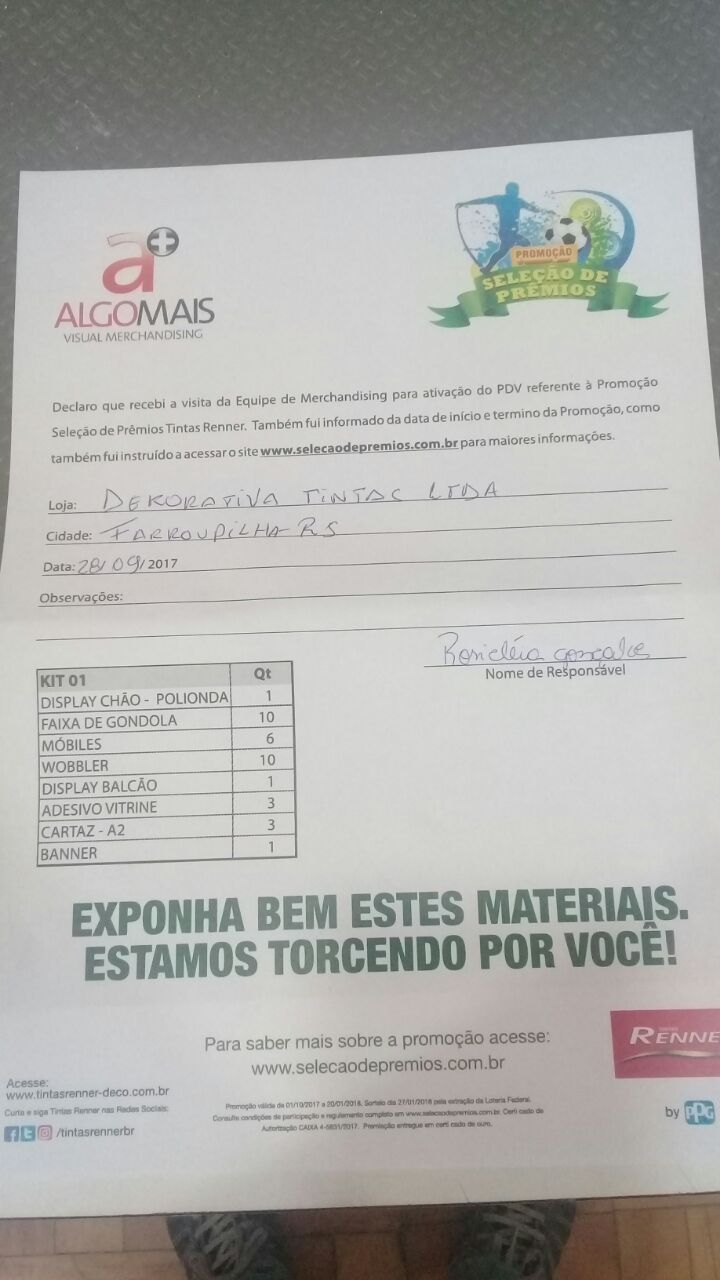 a+
ALGOMAIS
VISUAL MERCHANDISING
PROMOÇÃO
SELEÇÃO DE
PRÊMIOS
Declaro que recebi a visita da Equipe de Merchandising para ativação do PDV referente à Promoção
Seleção de Prêmios Tintas Renner. Também fui informado da data de início e termino da Promoção, como
também fui instruído a acessar o site www.selecaodepremios.com.br para maiores informações.
Loja: DEKORATIVA TINTAS LTDA
Cidade: FARROUPILHA RS
Data: 28/09/2017
Observações:
Rosicléia Gonçalves
Nome de Responsável
KIT 01 Qt
DISPLAY CHÃO - POLIONDA 1
FAIXA DE GONDOLA 10
MÓBILES 6
WOBBLER 10
DISPLAY BALCÃO 1
ADESIVO VITRINE 3
CARTAZ - A2 3
BANNER 1
EXPONHA BEM ESTES MATERIAIS.
ESTAMOS TORCENDO POR VOCÊ!
Para saber mais sobre a promoção acesse:
www.selecaodepremios.com.br
RENNE
Acesse:
www.tintasrenner-deco.com.br
Curta e siga Tintas Renner nas Redes Sociais:
/tintasrennerbr
Promoção válida de 01/10/2017 a 20/01/2018. Sorteio dia 27/01/2018 pela extração da Loteria Federal.
Consulte condições de participação e regulamento completo em www.selecaodepremios.com.br. Certi cado de
Autorização CAIXA 4-5831/2017. Premiação entregue em certi cado de ouro.
by PPG